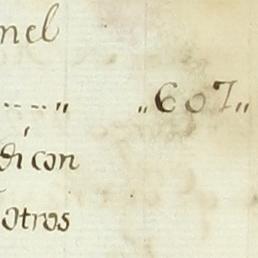 mel
----„ „607„
dicon
otros